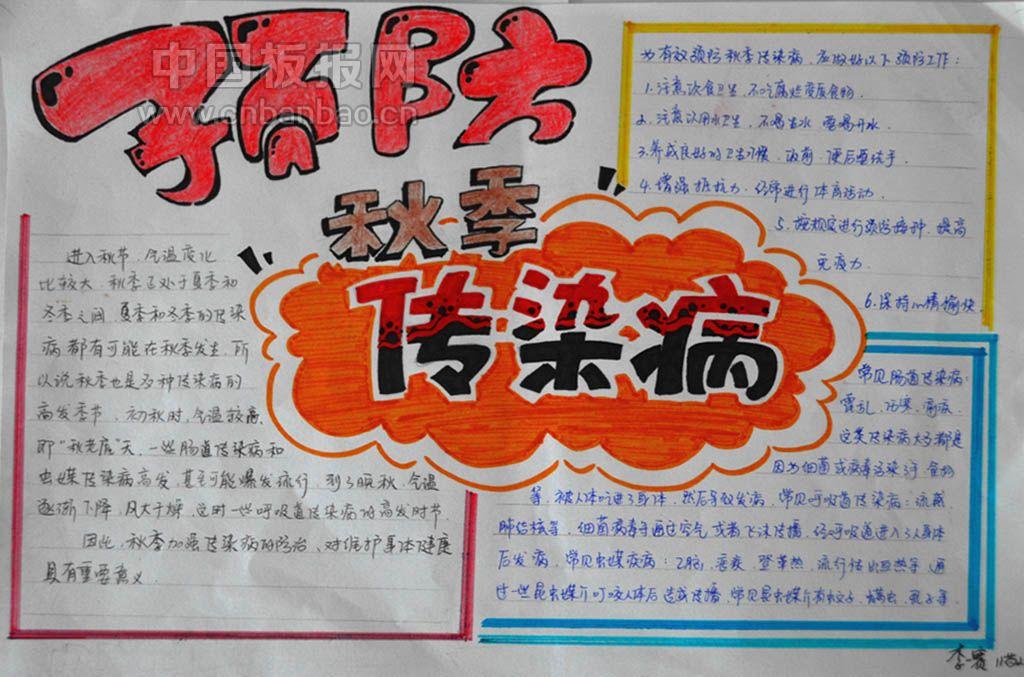 预防
中国板报网
www.cnbanbao.cn
秋季
传染病
进入秋节，气温变化
比较大，秋季又处于夏季和
冬季之间，夏季和冬季的传染
病都有可能在秋季发生，所
以说秋季也是多种传染病的
高发季节，初秋时，气温较高，
即“秋老虎”天，一些肠道传染病和
虫媒传染病高发，甚至可能爆发流行，到了晚秋，气温
逐渐下降，风大干燥，这时一些呼吸道传染病的高发时节
因此，秋季加强传染病的防治，对维护身体健康
具有重要意义
为有效预防秋季传染病，应做好以下预防工作：
1.注意饮食卫生，不吃腐烂变质食物.
2.注意饮用水卫生，不喝生水 要喝开水.
3.养成良好的卫生习惯，饭前，便后要洗手.
4.增强抵抗力，经常进行体育运动.
5.按规定进行预防接种，提高
免疫力.
6.保持心情愉快
常见肠道传染病：
霍乱，伤寒，痢疾，
这类传染病大多都是
因为细菌或病毒污染了食物
等，被人体吃进了身体，然后导致发病，常见呼吸道传染病：流感，
肺结核等，细菌病毒等通过空气或者飞沫传播，经呼吸道进入了人身体
后发病，常见虫媒疾病：乙脑，疟疾，登革热，流行性出血热等，通
过一些昆虫媒介叮咬人体后造成传播，常见昆虫媒介有蚊子，螨虫，虱子等，
李